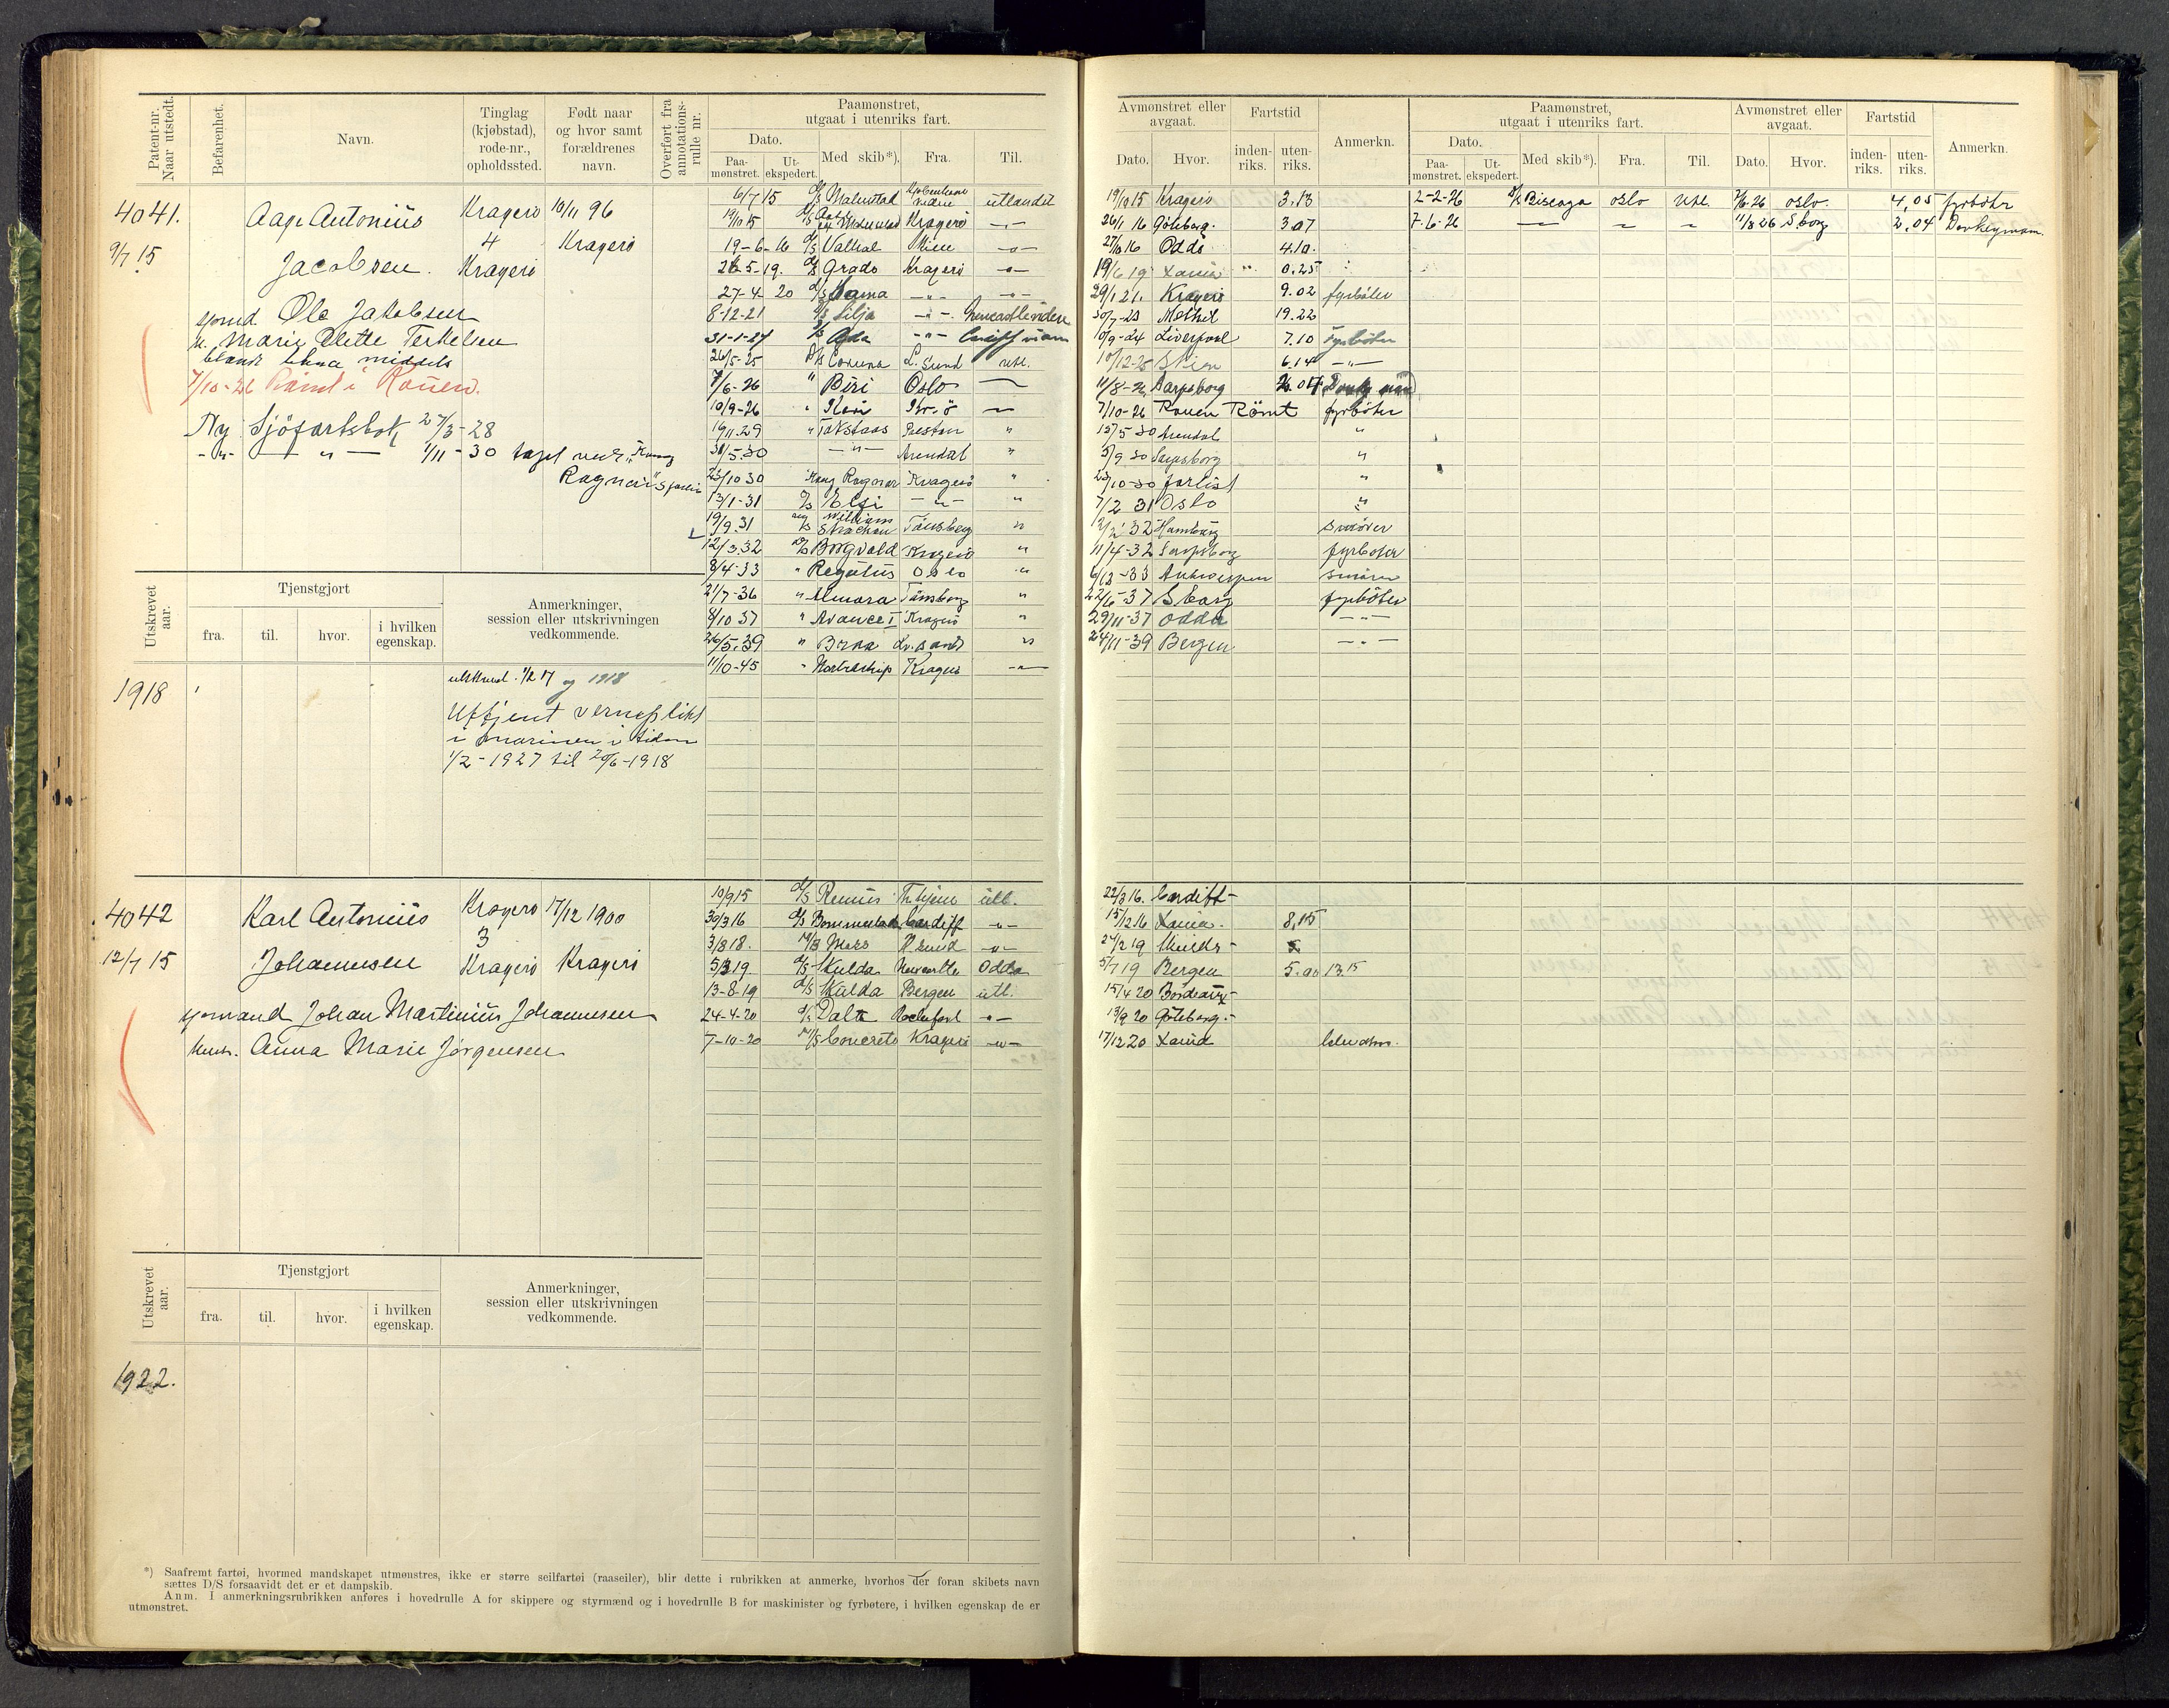 Patent-nr. Naar utstedt.
Befarenhet.
Navn.
Tinglag (kjøbstad), rode-nr., opholdssted.
Født naar og hvor samt forældrenes navn.
Overført fra annotations-rulle nr.
Paamønstret, utgaat i utenriks fart.
Dato.
Paa-mønstret.
Ut-ekspedert.
Med skib*).
Fra.
Til.
4041.
9/7 15
Aage Antonius
Jacobsen.
Kragerø
4
Kragerø
10/11 96
Kragerø
formd. Ole Jakobsen
Marie Olette Terkelsen
7/10-26 Römt i Rouen.
Ny Sjöfartsbok 27/3-28
-"- — " — 1/11-30 tapt ved "Kong
Ragnar's forlis
6/7 15 d/s Malmstad utlandet
19/10 15 Kragerø -"-
19-6-16 d/s Valhal -"-
26-5-19. d/s Grado Kragerø -"-
27-4-20 d/s Kama -"- -"-
8-12-21 d/s Silja -"-
31-1-24 d/s Ada -"- Cardiff
26/5-25 d/s Corona L. Sund utl.
7/6-26 " Biri Oslo —
10/9-26 " Kr.ö —
16/11 29 " Tokstaas Preston "
30/5-30 -"- Arendal "
23/10 30 Kong Ragnar Kragerø "
13/1-31 d/s Elsi -"- "
19/9 31 William Strachan Tönsberg "
12/3 32 d/s Borgvald Kragerø "
8/4-33 " Regulus Oslo "
21/7-36 " Almora Tönsberg "
8/10 37 " Avance I Kragerø "
26/5.39 " Kr.sand "
11/10-45 " Nortraship Kragerø -"-
Utskrevet aar.
Tjenstgjort
fra.
til.
hvor.
i hvilken egenskap.
Anmerkninger, session eller utskrivningen vedkommende.
1918
utskrud. 1/2 17 og 1918
Uttjent verneplikt
i marinen i tiden
1/2-1927 til 20/6-1918
4042
12/7 15
Karl Antonius
Johannesen
Kragerø
3
Kragerø
17/12 1900
Kragerø
formand Johan Martinius Johannesen
Anna Marie Jørgensen
10/9 15 d/s Remus Tr.hjem utl.
30/3 16 d/s Bommestad Cardiff -"-
3/8 18. M/S Mars -"-
5/3 19 d/s Skulda Newcastle Odda
13-8-19 d/s Skulda Bergen utl.
24-4-20 d/s Dalta Rochefort -"-
7-10-20 M/S Concrete Kragerø -"-
Utskrevet aar.
Tjenstgjort
fra.
til.
hvor.
i hvilken egenskap.
Anmerkninger, session eller utskrivningen vedkommende.
1922.
*) Saafremt fartøi, hvormed mandskapet utmønstres, ikke er større seilfartøi (raaseiler), blir dette i rubrikken at anmerke, hvorhos der foran skibets navn
sættes D/S forsaavidt det er et dampskib.
Anm. I anmerkningsrubrikken anføres i hovedrulle A for skippere og styrmænd og i hovedrulle B for maskinister og fyrbøtere, i hvilken egenskap de er
utmønstret.
Avmønstret eller avgaat.
Dato.
Hvor.
Fartstid
inden-riks.
uten-riks.
Anmerkn.
Paamønstret, utgaat i utenriks fart.
Dato.
Paa-mønstret.
Ut-ekspedert.
Med skib*).
Fra.
Til.
Avmønstret eller avgaat.
Dato.
Hvor.
Fartstid
inden-riks.
uten-riks.
Anmerkn.
19/10 15 Kragerø 3.13
26/1 16 Göteborg. 3.07
27/10 16 Odda 4.10.
19/6 19 0.25
29/1 21. Kragerø 9.02 fyrböter
30/7-23 Methil 19.22
10/9-24 Liverpool 7.10 Fyrböter
10/12-25 Skien 6.14 -"-
11/8-26 Sarpsborg 2.04 Donkeyman
7/10-26 Rouen Römt fyrböter
15/5 30 Arendal "
5/9 30 Sarpsborg "
23/10-30 forlist "
7/2 31 Oslo "
12/2 32 Hamburg smörer
11/4-32 Sarpsborg fyrböter
6/12-33 Antwerpen smörer
22/6-37 S borg fyrböter
29/11-37 Odda -"-
24/11-39 Bergen -"-
2-2-26 d/s Biscaya Oslo utl. 7/6-26 Oslo. 4,05 fyrböter
7-6-26 — — — 11/8 26 S borg 2.04 Donkeyman.
22/3 16. Cardiff-
15/12 16 8,15
24/2 19
5/7 19 Bergen 5.00 13.15
15/4 20 Bordeaux-
13/9 20 Göteborg.-
17/12 20